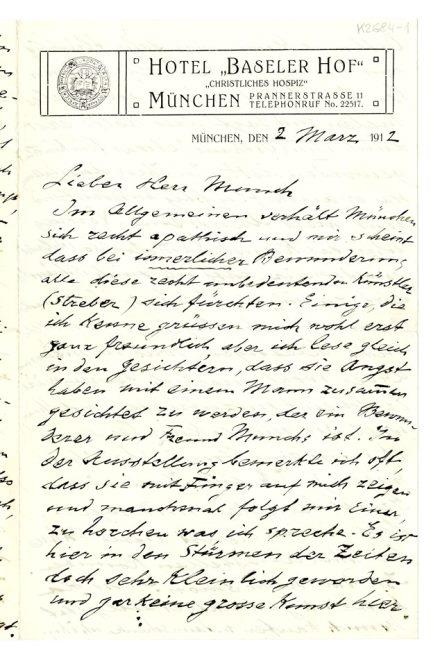 K2684-1
HOTEL „BASELER HOF“
„CHRISTLICHES HOSPIZ“
MÜNCHEN PRANNERSTRASSE 11
TELEPHONRUF No. 22517.
MÜNCHEN, DEN 2 Marz 1912
Lieber Herr Munch
Im Allgemeinen verhält München
sich recht apathisch und mir scheint
dass bei innerlicher Bewunderung
alle diese recht unbedeutenden Künstler
(Streber) sich fürchten. Einige, die
ich kenne grüssen mich wohl erst
ganz freundlich aber ich lese gleich
in den Gesichtern, dass sie Angst
haben mit einem Mann zusammen
gesichtet zu werden, der ein Bewun-
derer und Freund Munchs ist. In
der Ausstellung bemerkte ich oft,
dass sie mit Finger auf mich zeigen
und manchmal folgt mir Einer,
zu horchen was ich spreche. Es ist
hier in den Stürmen der Zeiten
doch sehr kleinlich geworden
und gar keine grosse Kunst hier.